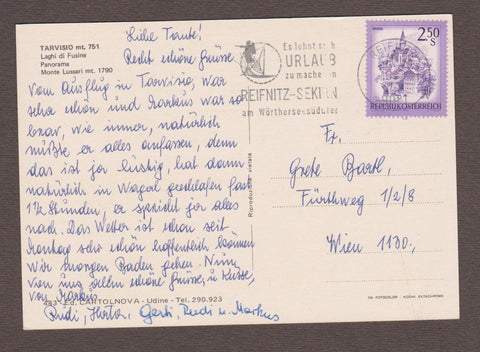 TARVISIO mt. 751
Laghi di Fusine
Panorama
Monte Lussari mt. 1790
Liebe Tante!
Recht schöne Grüsse
vom Ausflug in Tarvisio, war
sehr schön und Markus war so
brav, wie immer, natürlich
müßte er alles anfassen, denn
das ist ja lustig, hat dann
natürlich im Wagerl geschlafen fast
1½ Stunden, er spricht jetzt alles
nach. Das Wetter ist schon seit
Montag sehr schön hoffentlich können
wir morgen Baden gehen. Nun
von uns allen schöne Grüsse, u. Küsse,
von Markus
Rudi, Gerti, Rudi u. Markus
443 - Ed. CARTOLNOVA - Udine - Tel. 290.923
Riproduzione vietata
Es lohnt sich
URLAUB
zu machen in
REIFNITZ-SEKIRN
am Wörthersee-Südufer
2.50
S
REPUBLIK ÖSTERREICH
Fr.
Grete Bartl,
Fürthweg 1/2/8
Wien 1130,-
DA FOTOCOLOR KODAK EKTACHROME